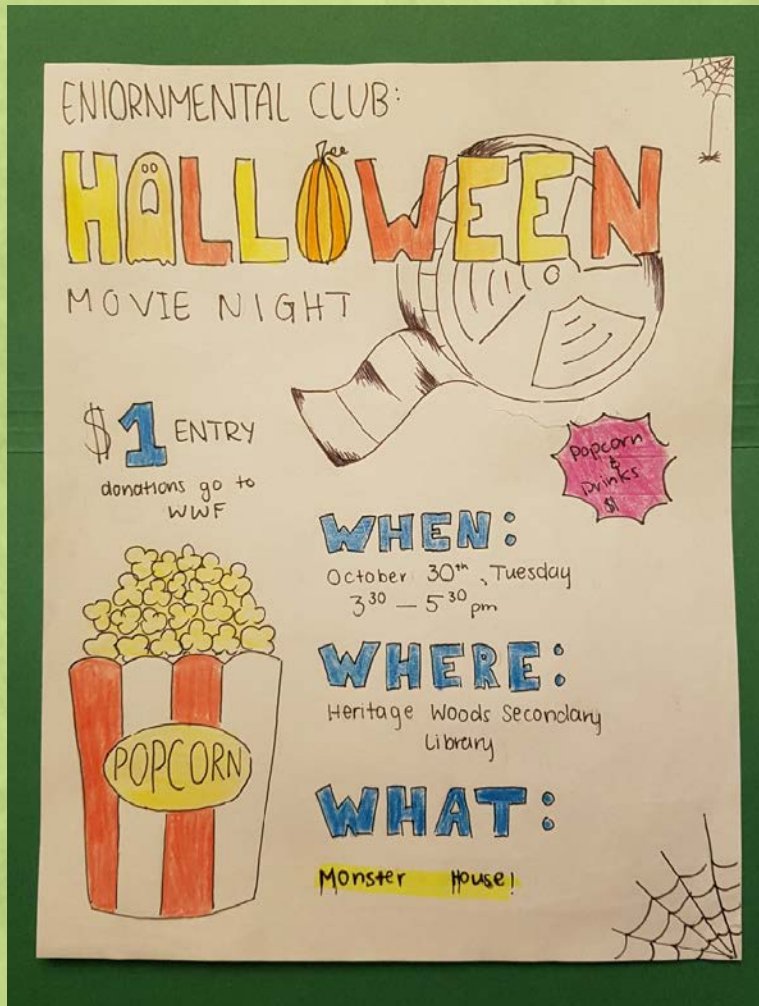 ENIORNMENTAL CLUB:
HALLOWEEN
MOVIE NIGHT
$1 ENTRY
donations go to
WWF
Popcorn
&
Drinks
$1
WHEN:
October 30th, Tuesday
3 30 — 5 30 pm
WHERE:
Heritage Woods Secondary
Library
WHAT:
Monster House!
POPCORN